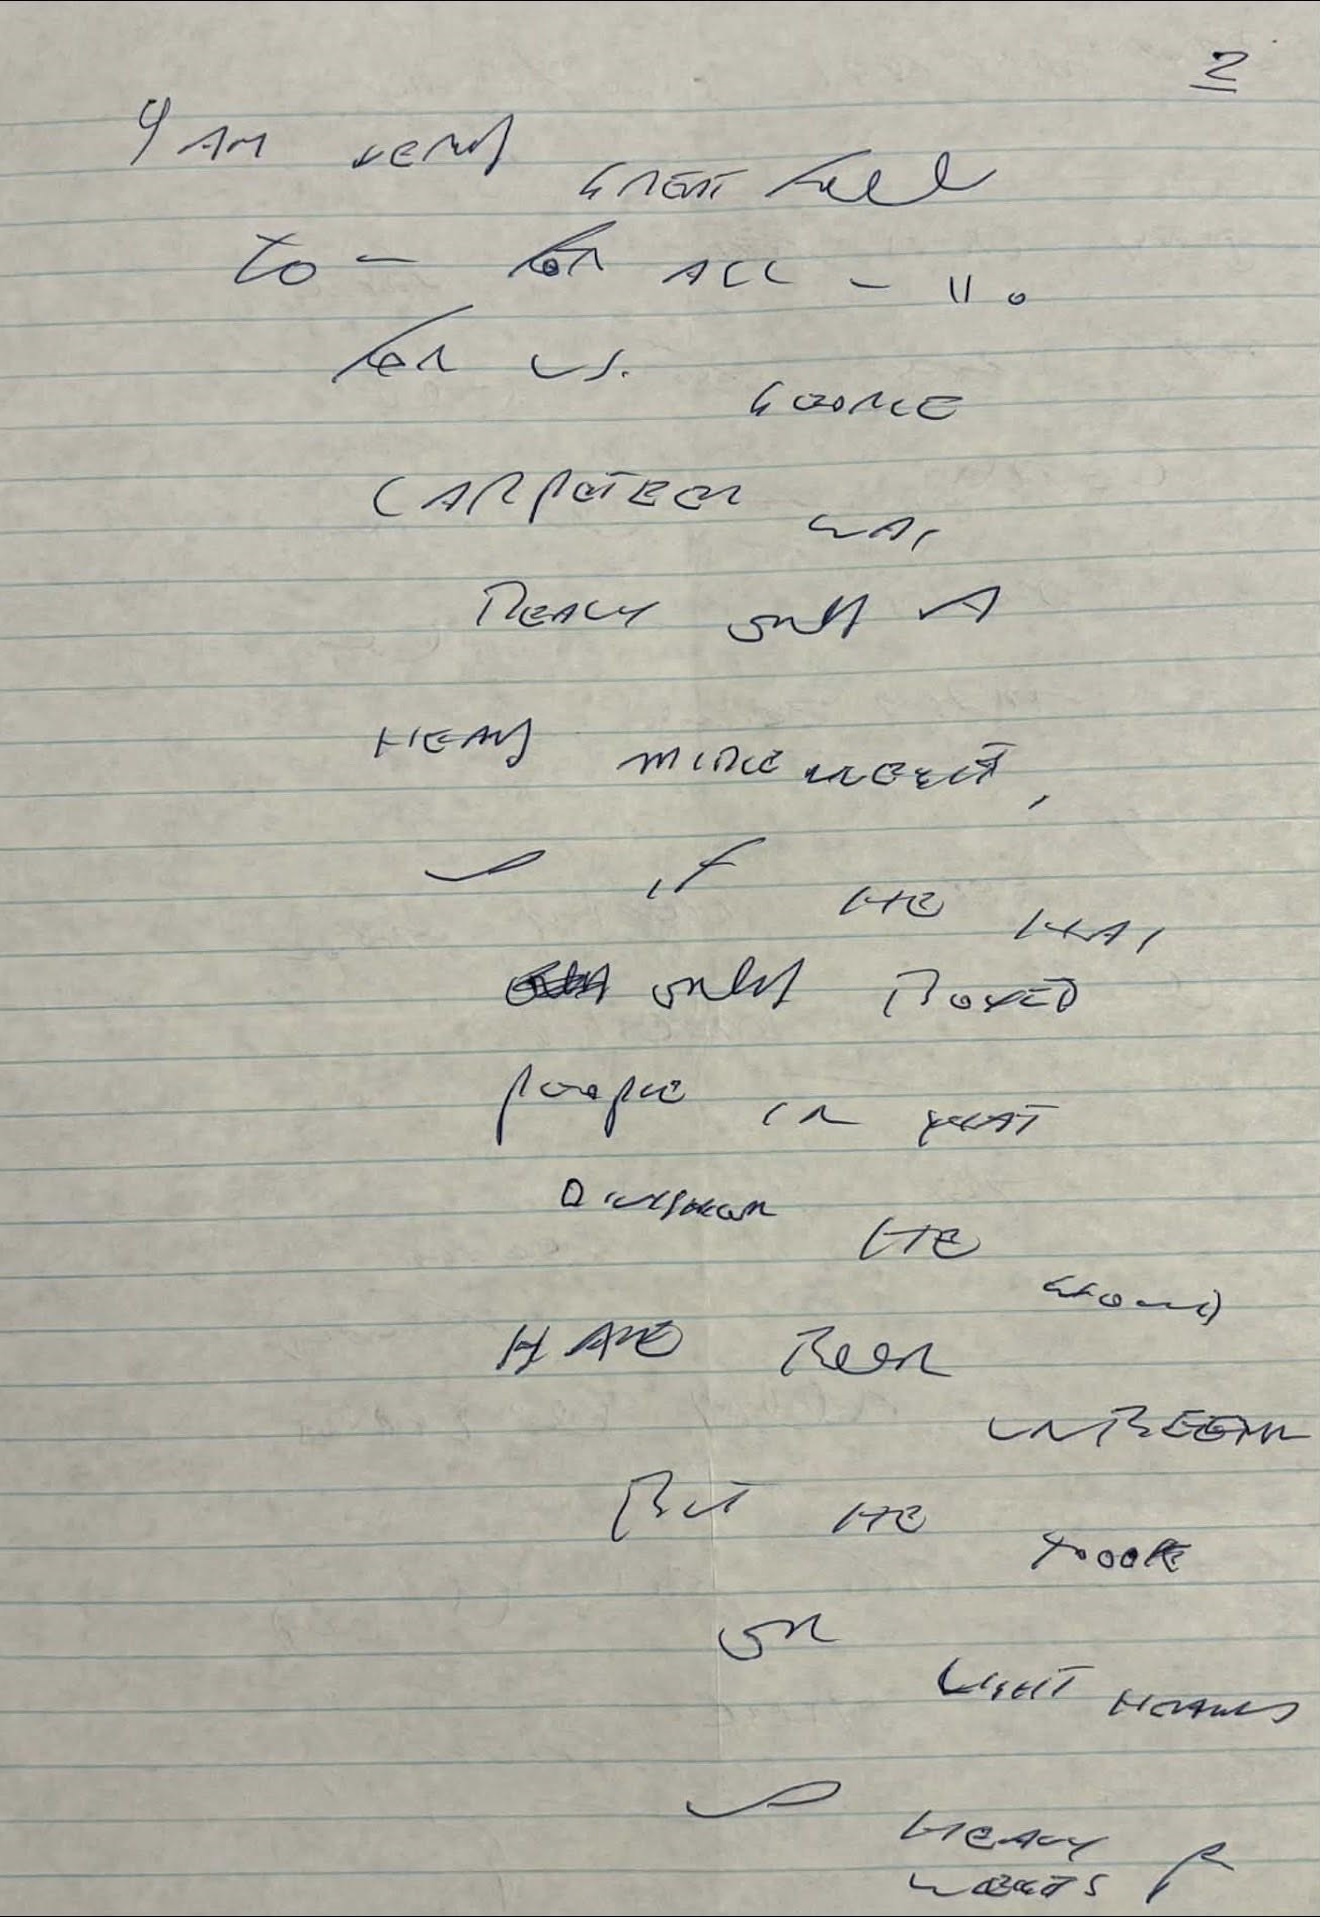 2
I AM VERY GREATFULL
TO - FOR ALL - 11.
FOR US. GEORGE
CARPETEER WAS
REALY ONLY A
HEAVY MIDLEWEGHT,
& IF HE HAS
ONLY BOXED
PEOPLE IN THAT
DIVISION HE WOULD
HAVE BEEN
UNBEEAN
BUT HE TOOK
ON LIGHT HEAVYS
& HEAVY
WEGHTS